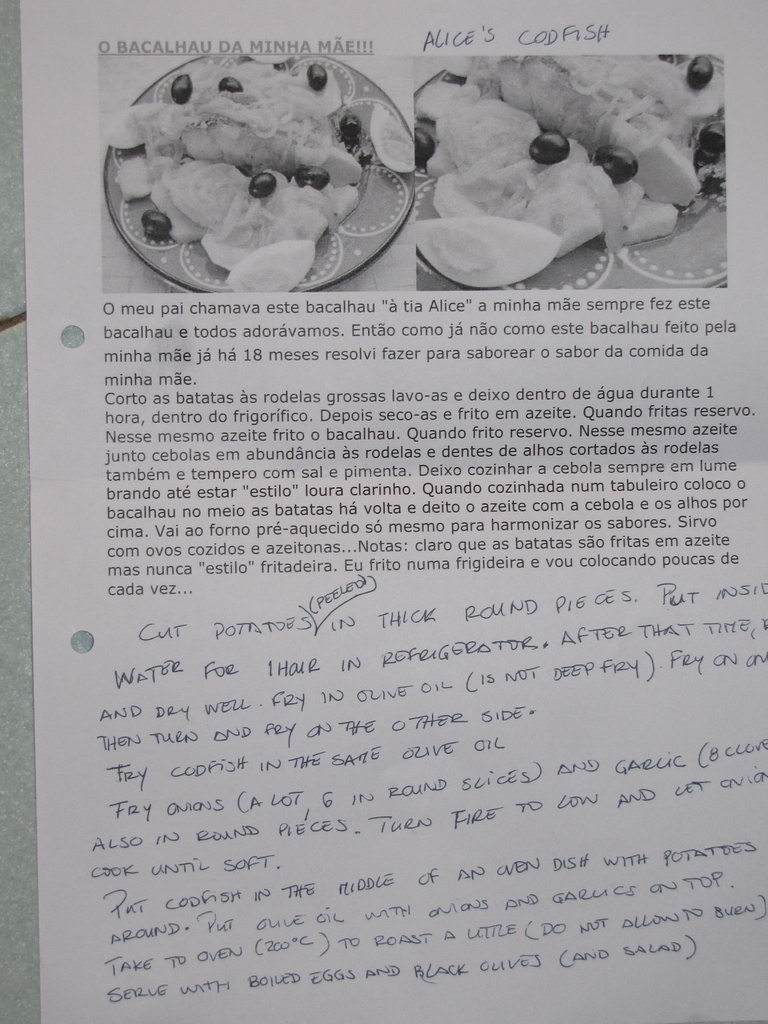 O BACALHAU DA MINHA MÃE!!!
ALICE'S CODFISH
O meu pai chamava este bacalhau "à tia Alice" a minha mãe sempre fez este
bacalhau e todos adorávamos. Então como já não como este bacalhau feito pela
minha mãe já há 18 meses resolvi fazer para saborear o sabor da comida da
minha mãe.
Corto as batatas às rodelas grossas lavo-as e deixo dentro de água durante 1
hora, dentro do frigorífico. Depois seco-as e frito em azeite. Quando fritas reservo.
Nesse mesmo azeite frito o bacalhau. Quando frito reservo. Nesse mesmo azeite
junto cebolas em abundância às rodelas e dentes de alhos cortados às rodelas
também e tempero com sal e pimenta. Deixo cozinhar a cebola sempre em lume
brando até estar "estilo" loura clarinho. Quando cozinhada num tabuleiro coloco o
bacalhau no meio as batatas há volta e deito o azeite com a cebola e os alhos por
cima. Vai ao forno pré-aquecido só mesmo para harmonizar os sabores. Sirvo
com ovos cozidos e azeitonas...Notas: claro que as batatas são fritas em azeite
mas nunca "estilo" fritadeira. Eu frito numa frigideira e vou colocando poucas de
cada vez...
CUT POTATOES (PEELED) IN THICK ROUND PIECES. PUT
WATER FOR 1 HAIR IN REFRIGERATOR. AFTER THAT TIME,
AND DRY WELL. FRY IN OLIVE OIL (IS NOT DEEP FRY). FRY ON
THEN TURN AND FRY ON THE OTHER SIDE.
FRY CODFISH IN THE SAME OLIVE OIL
FRY ONIONS (A LOT, 6 IN ROUND SLICES) AND GARLIC (8
ALSO IN ROUND PIECES. TURN FIRE TO LOW AND LET
COOK UNTIL SOFT.
PUT CODFISH IN THE MIDDLE OF AN OVEN DISH WITH POTATOES
AROUND. PUT OLIVE OIL WITH ONIONS AND GARLICS ON TOP.
TAKE TO OVEN (200°C) TO ROAST A LITTLE (DO NOT ALLOW TO BURN)
SERVE WITH BOILED EGGS AND BLACK OLIVES (AND SALAD)